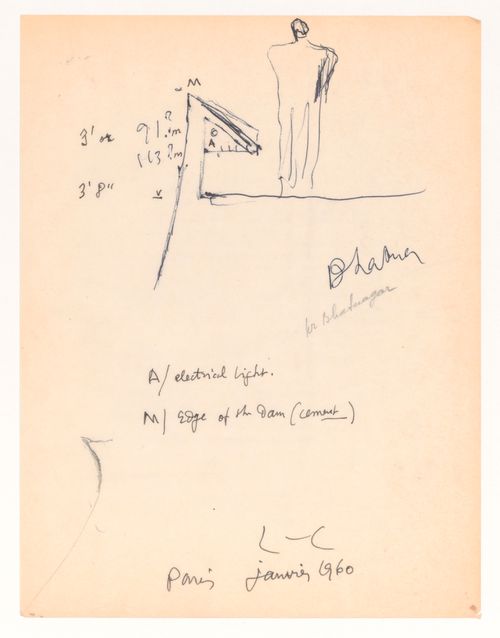 M
3' or 91? cm
A
113? m
3' 8"
v
Bhatnar
for Bhatnagar
A/ electrical light.
M/ Edge of the Dam (cement)
L-C
Paris janvier 1960